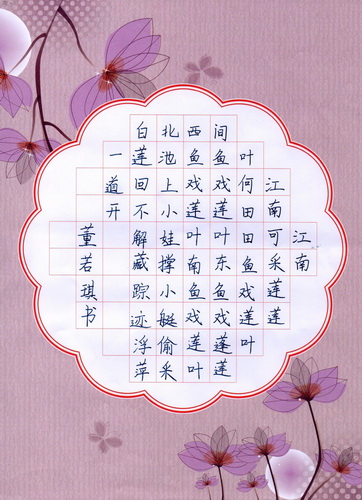 江南
江南可采莲莲
叶何田田鱼戏莲叶
间鱼戏莲叶东鱼戏莲莲
西鱼戏莲叶南鱼戏莲叶
北池上小娃撑小艇偷采
白莲回不解藏踪迹浮萍
一道开
董若琪书